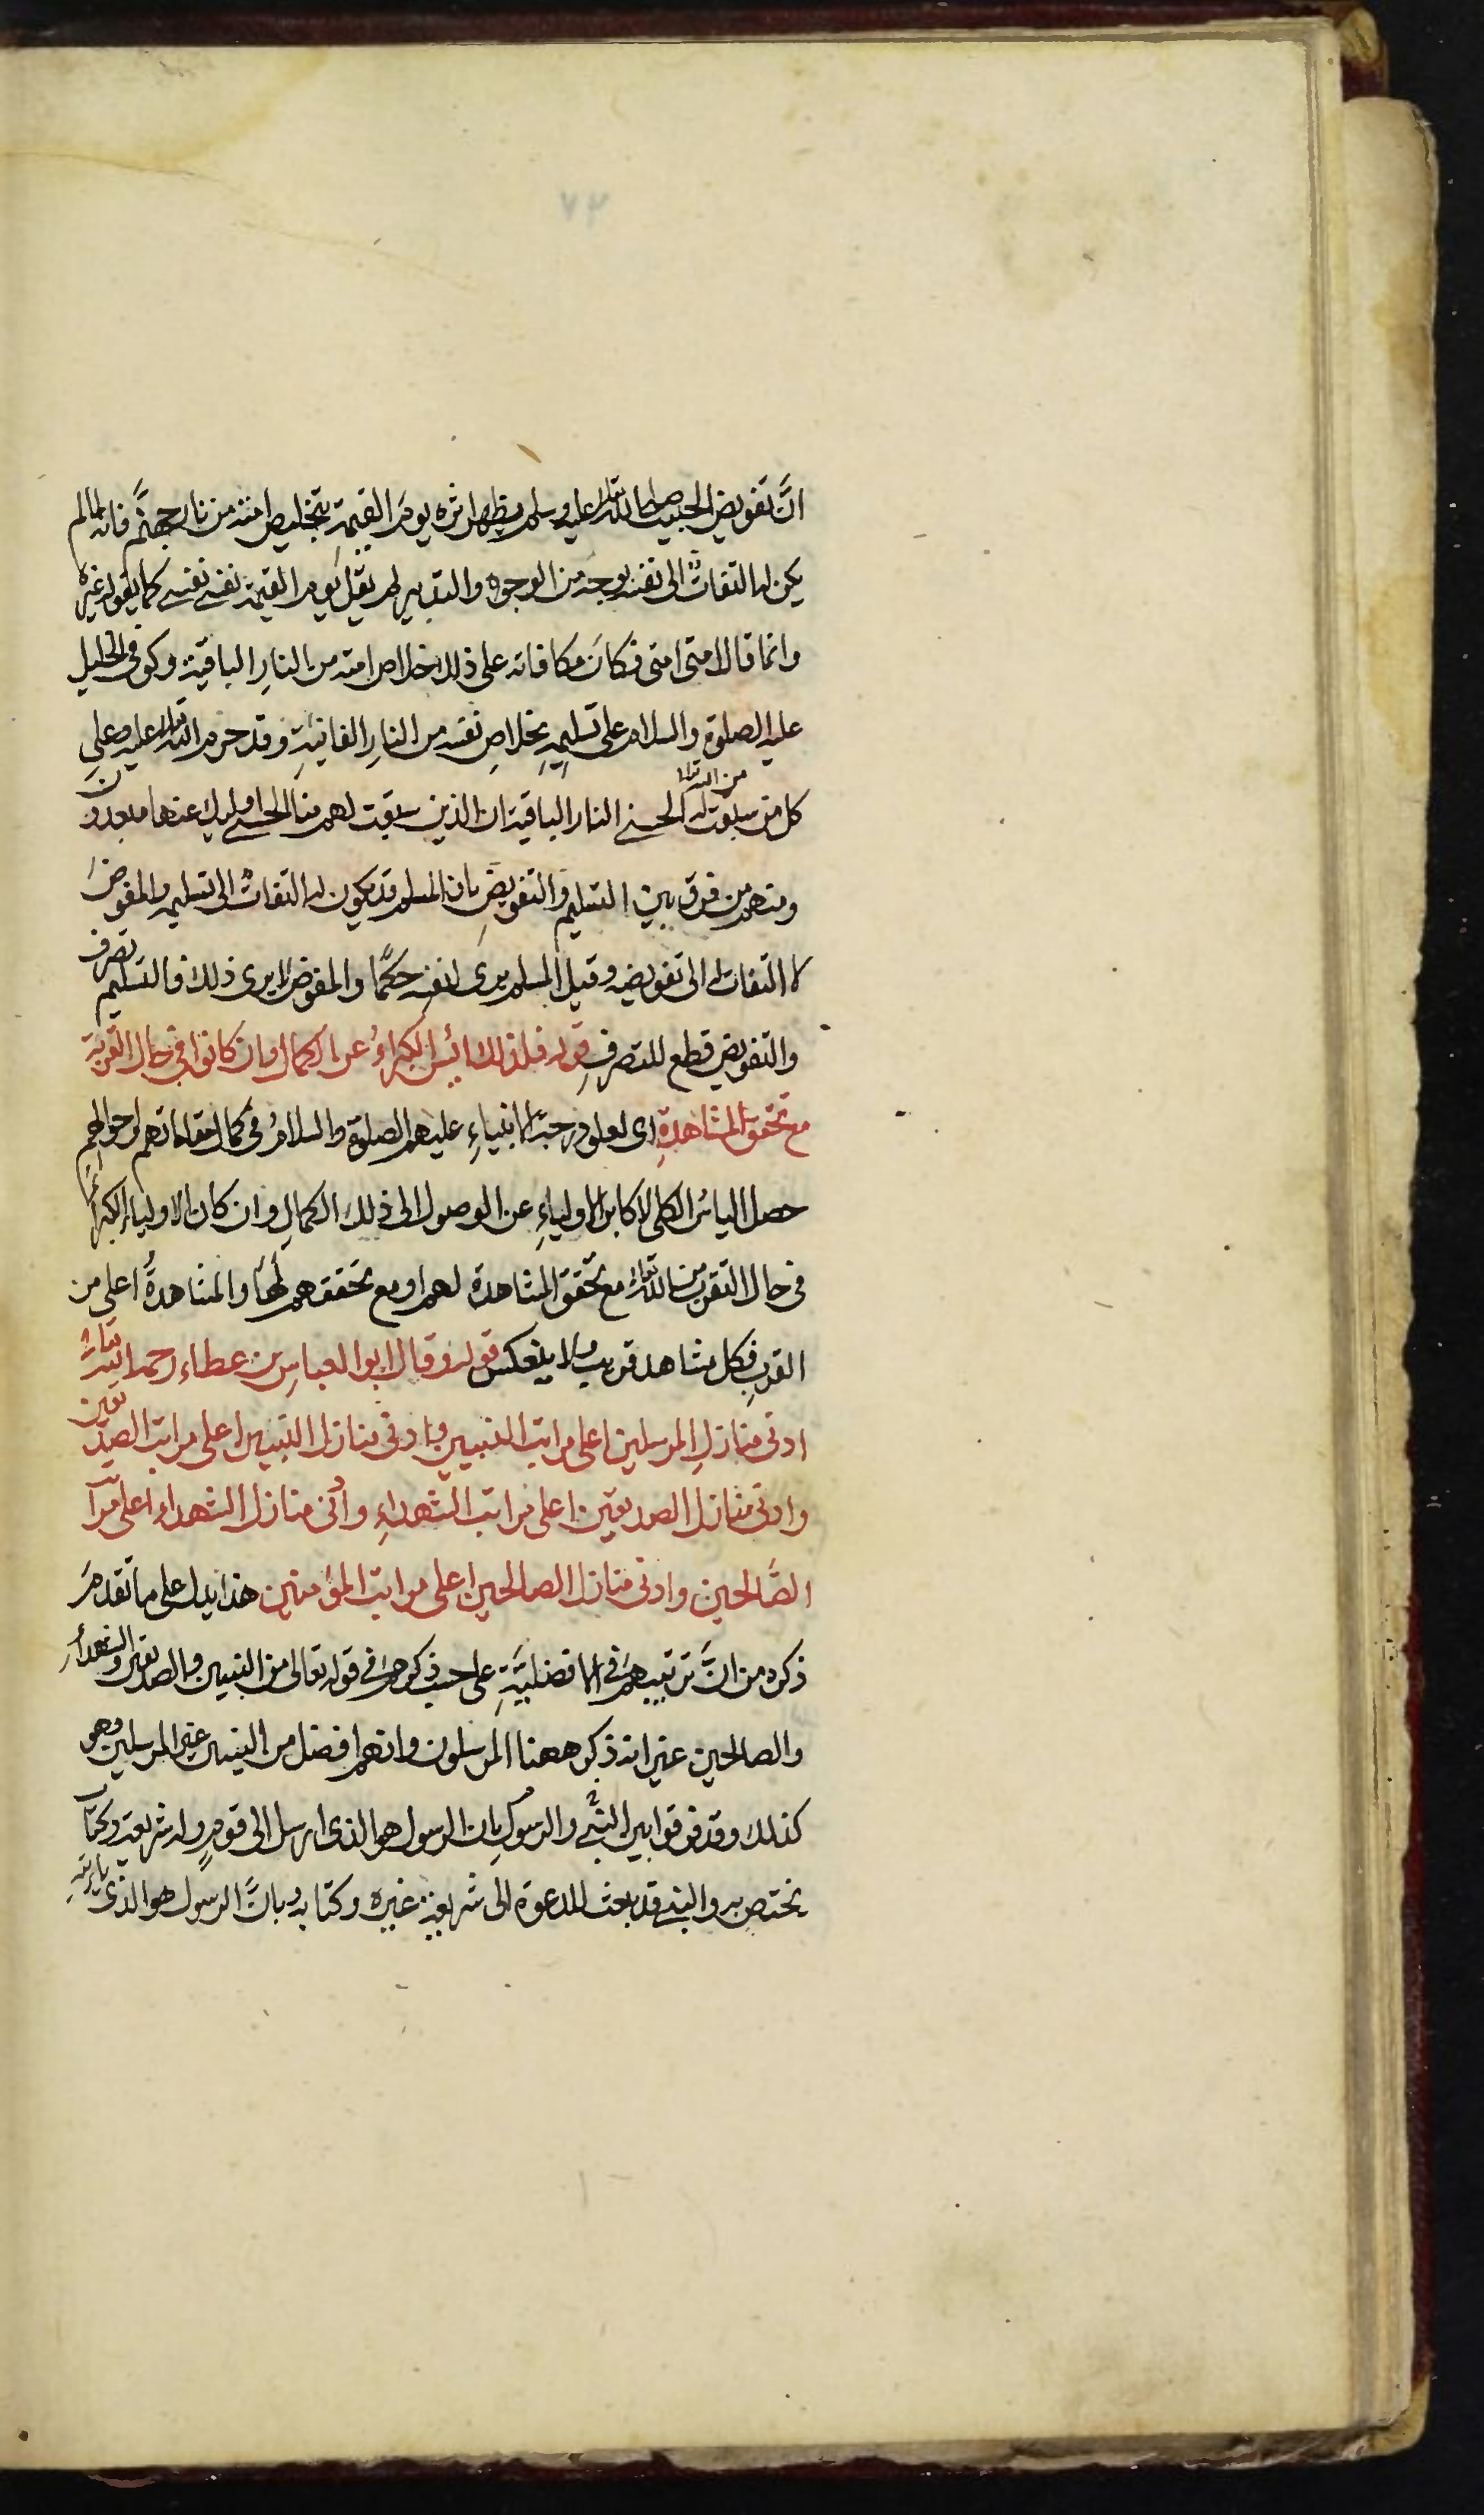 ٧٣
انَّ تفويض الحبيب صلى الله تعالى عليه وسلم يظهر اثره يومَ القيمة بتخليص امته من نار جهنَّم فانه لما لم
يكن له التفاتٌ الى نفسه بوجه من الوجوه والتدبير لم يقل يوم القيمة نفسى نفسى كما يقوله غيره
وانما قال امتى امتى فكانَ مكافاته على ذلك خلاص امته من النارِ الباقية وكوفى الخليل
عليه الصلوة والسلام على تسليمِهِ بخلاصِ نفسه من النارِ الفانيةِ وقد حرم الله تعالى عليه وعلى
كل من سبقت له من الله تعالى الحسنى النار الباقية ان الذين سبقت لهم منا الحسنى اولئك عنها مبعدون
ومنهم من فرق بين التسليم والتفويضِ بان المسلم قد يكون له التفاتٌ الى تسليمه والمفوضَ
لا التفات له الى تفويضه وقيل المسلم يرى لنفسه حكمًا والمفوض لا يرى ذلك فالتسليم تصرف
والتفويض قطع للتصرفِ قوله فلذلك ائيس الكبراءُ عن الكمال وان كانوا فى حال القربة
مع تحقق المشاهدةِ اى لعلو درجة الانبياءِ عليهم الصلوة والسلامُ فى كمال مقاماتهم واحوالهم
حصل الياسُ الكلى لاكابر الاولياءِ عن الوصول الى ذلك الكمالِ وان كان الاولياء الكبراءُ
فى حال التقرب من الله تعالى مع تحقق المشاهدة لهم او مع تحققهم لها والمشاهدةُ اعلى من
القربِ فكل مشاهد قريب ولا ينعكس قوله وقال ابو العباسِ بن عطاء رحمه الله تعالى
ادنى منازلِ المرسلين اعلى مراتب النبيين وادنى منازل النبيين اعلى مراتب الصديقين
وادنى منازل الصديقين اعلى مراتب الشهداءِ وادنى منازل الشهداء اعلى مرآتب
الصَّالحين وادنى منازل الصالحين اعلى مراتب المؤمنين هذا يدل على ما تقدمَ
ذكره من انَّ ترتيبهم فى الافضليَّةِ على حسب ذكرهم فى قوله تعالى من النبيين والصديقين والشهداءِ
والصالحين غير انه ذكر ههنا المرسلون وانهم افضل من النبيين غير المرسلين وهو
كذلك وقد فرقوا بين النبى والرسول بان الرسول هو الذى ارسل الى قومٍ وله شريعة وكتاب
يختص به والنبى قد بعث للدعوة الى شريعة غيره وكتابه وبانَّ الرسول هو الذى ياتيه